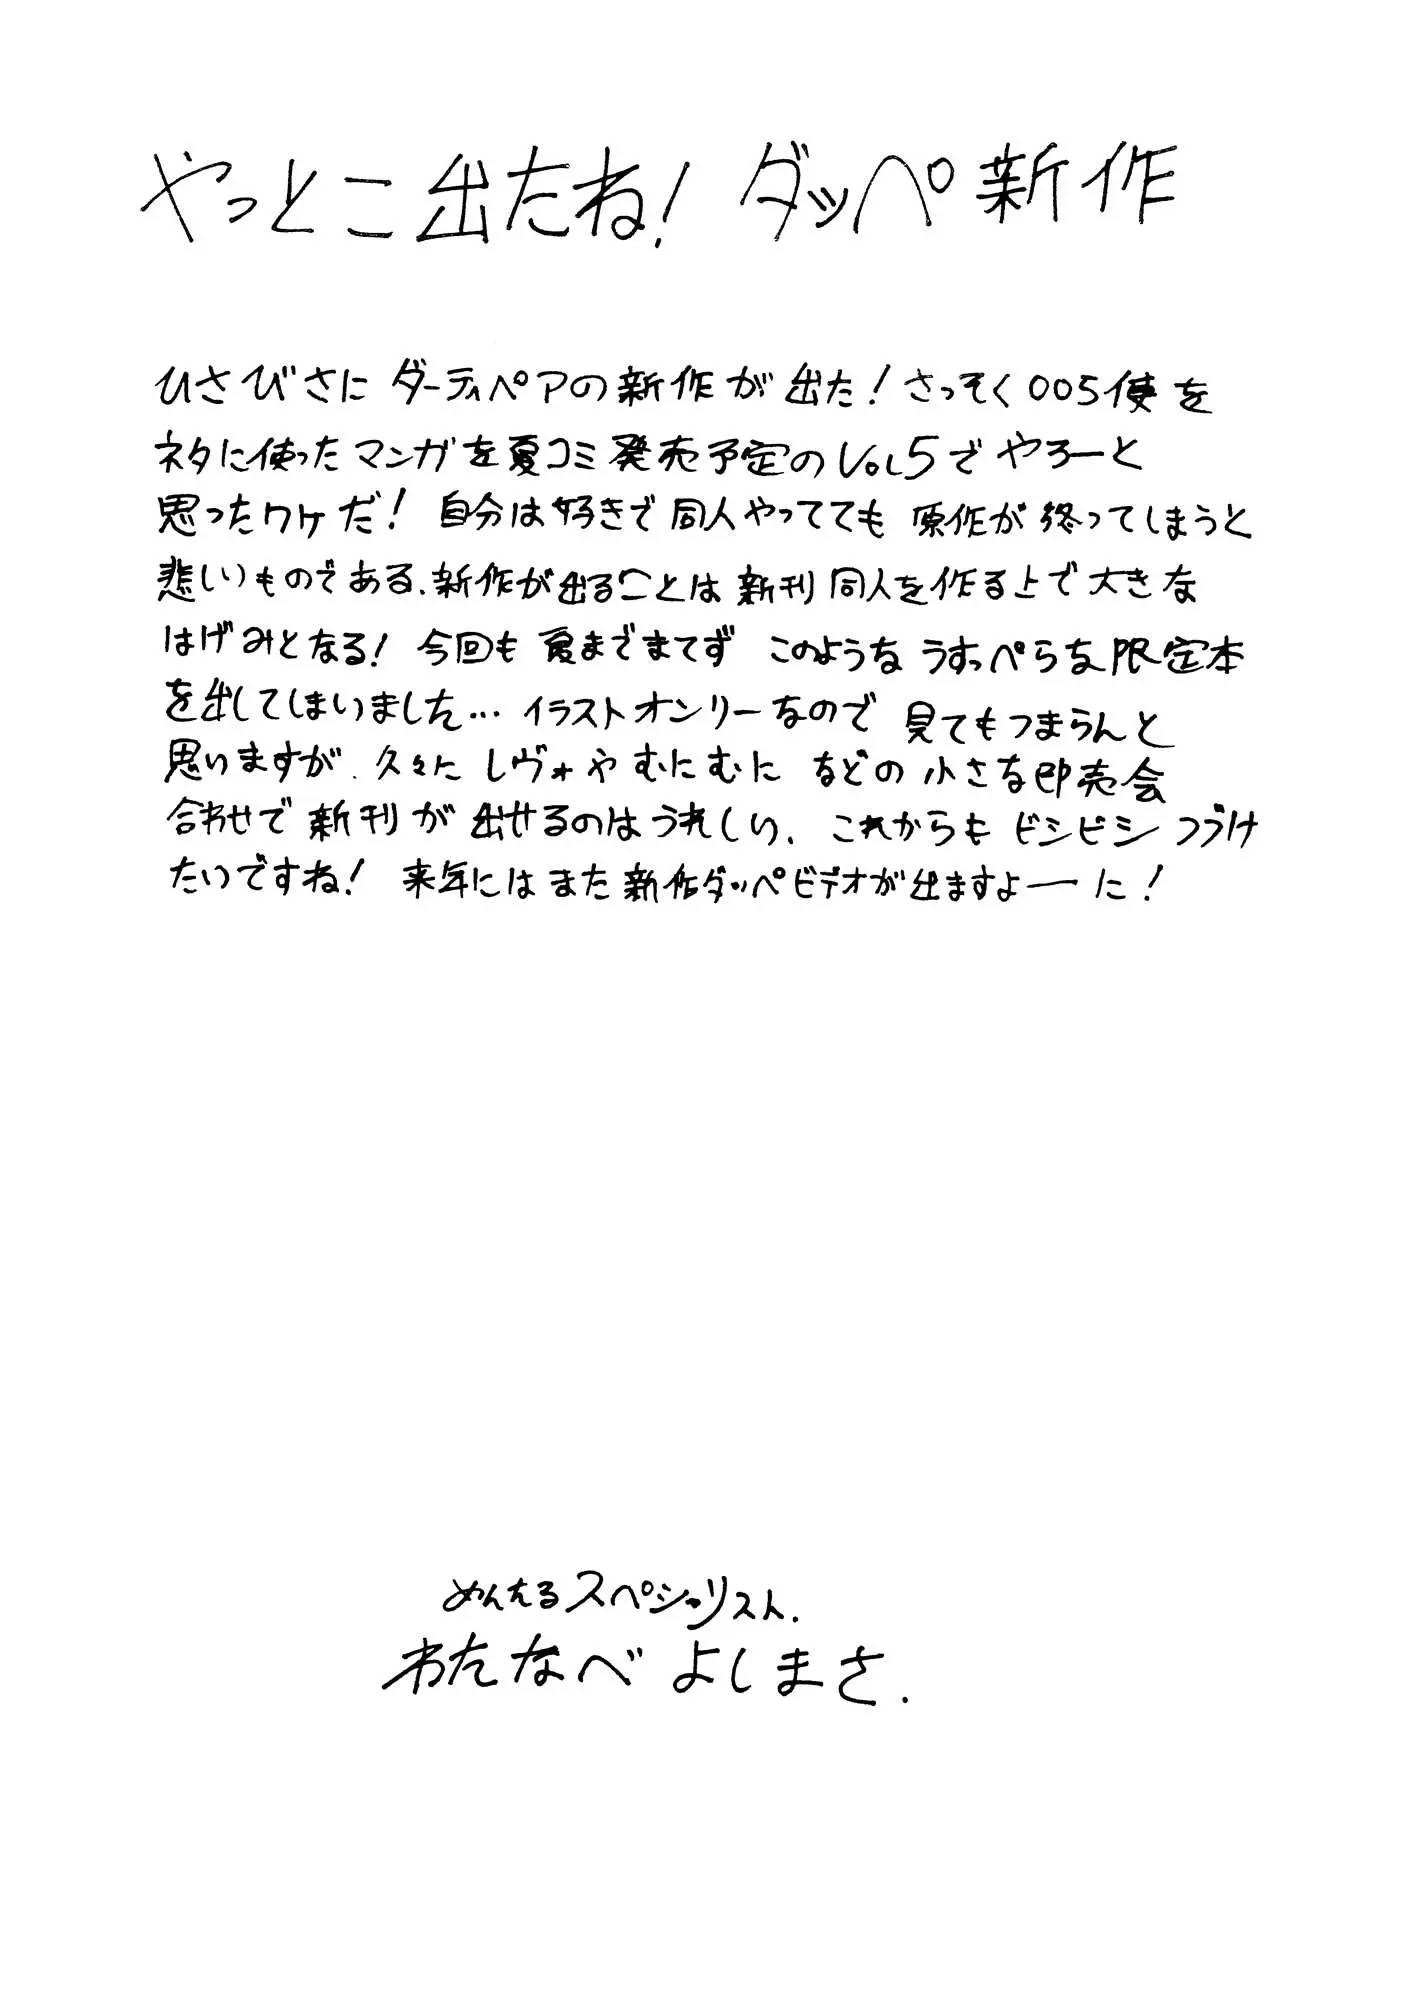 やっとこ出たね! ダッペ新作
ひさびさに ダーティペアの新作が出た! さっそく005便を
ネタに使ったマンガを夏コミ発売予定のVOL5でやろーと
思ったワケだ! 自分は好きで同人やってても 原作が終ってしまうと
悲しいものである.新作が出ることは新刊同人を作る上で大きな
はげみとなる! 今回も夏までまてず このような うすっぺらな限定本
を出してしまいました… イラストオンリーなので 見てもつまらんと
思いますが. 久々に レヴォや むにむに などの小さな即売会
合わせで新刊が出せるのはうれしい. これからもビシビシつづけ
たいですね! 来年にはまた新作ダッペビデオが出ますよーに!
めんえるスペシャリスト.
わたなべ よしまさ.